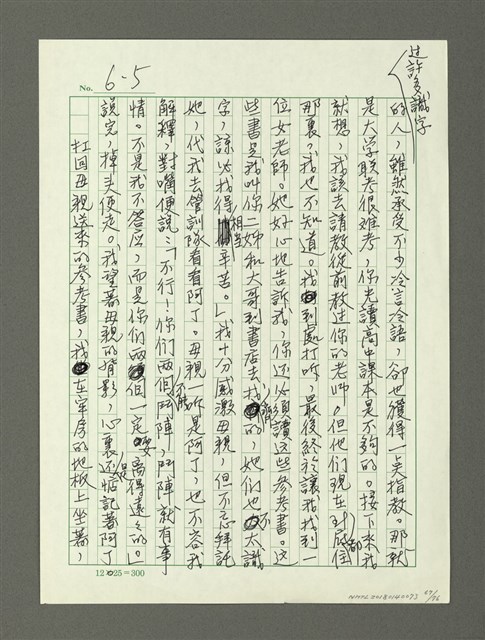 No. 6-5
过許多識字
的人，雖然承受不少冷言冷語，卻也獲得一美指教。那就
是大学联考很难考，你光讀高中課本是不夠的。接下來我
就想，我該去請教從前教过你的老师。但他们現在都住
那裏，我也不知道。我到處打听，最後終於讓我找到一
位女老師。她好心地告訴我，你还必須讀这些参考書。这
些書是我叫你二姊和大哥到書店去找的，她们也不太識
字，該必找得相当辛苦。」我十分感激母親，但不忘拜託
她，代我去管訓隊看看阿丁。母親一听是阿丁，也不容我
解釋，對嘴便說：「不行！你们两個不能鬥陣，鬥陣就有事
情。不是我不答应，而是你们两個一定要离得遠々的。」
說完，掉头便走。我望著母親的背影，心裏还是惦記著阿丁
扛回母親送來的参考書，我在牢房的地板上坐著，
12×25=300
NMTL20180140073
67/76